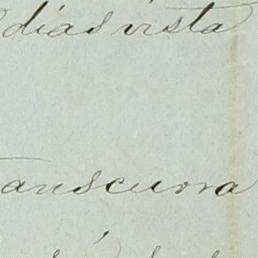 dias vista
anscurra